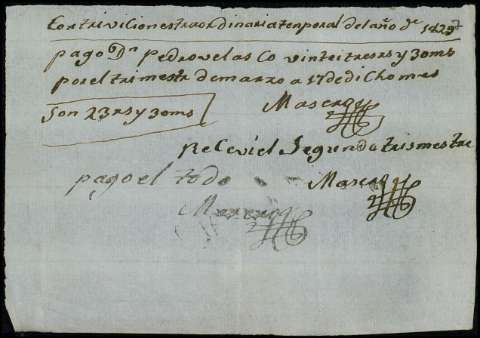 Contrivicion estraordinaria temporal del año de 1829
pago Dn Pedro velas Co veinteitres rs y 30 ms
por el trimestr de marzo a 17 de dicho mes
Son 23 rs y 30 ms
Recevi el Segundo trismestre
pago el todo